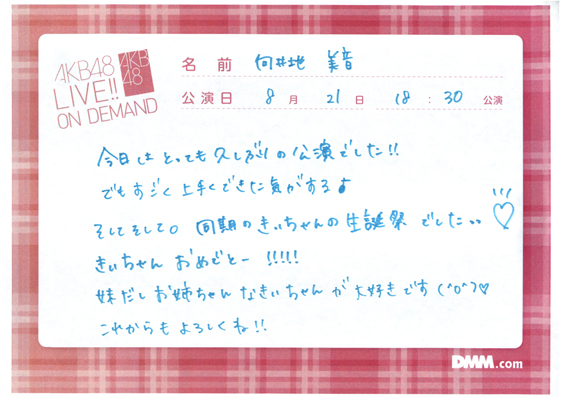 AKB48
LIVE!!
ON DEMAND
AKB
48
名 前 向井地 美音
公演日 8 月 21 日 18 : 30 公演
今日はとっても久しぶりの公演でした!!
でもすごく上手くできた気がする♪
そしてそして。同期のきぃちゃんの生誕祭でした..
きぃちゃん おめでとー !!!!!
妹だしお姉ちゃんなきぃちゃんが大好きです(^o^)♡
これからもよろしくね!!
DMM.com